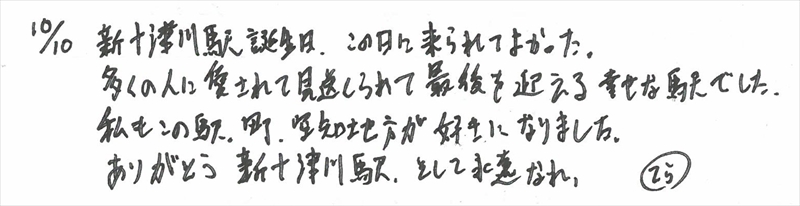 10/10 新十津川駅誕生日、この日に来られてよかった。
多くの人に愛されて見送られて最後を迎える幸せな駅でした。
私もこの駅、町、空知地方が好きになりました。
ありがとう 新十津川駅、そして永遠なれ。